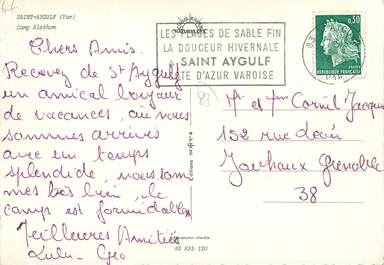 SAINT-AYGULF (Var)
Camp Alethon
LES PLAGES DE SABLE FIN
LA DOUCEUR HIVERNALE
SAINT AYGULF
CÔTE D'AZUR VAROISE
0,50
83
Chers Amis.
Recevez de St Aygulf
un amical bonjour
de vacances, où nous
sommes arrivés
avec un temps
splendide, nous som
mes très bien, le
camp est formidable
Meilleures Amitiés
Lulu - Geo
Mr et Mme Cornil Jacques
152 rue Léon
Jouhaux Grenoble
38
Reproduction interdite
83 835 120